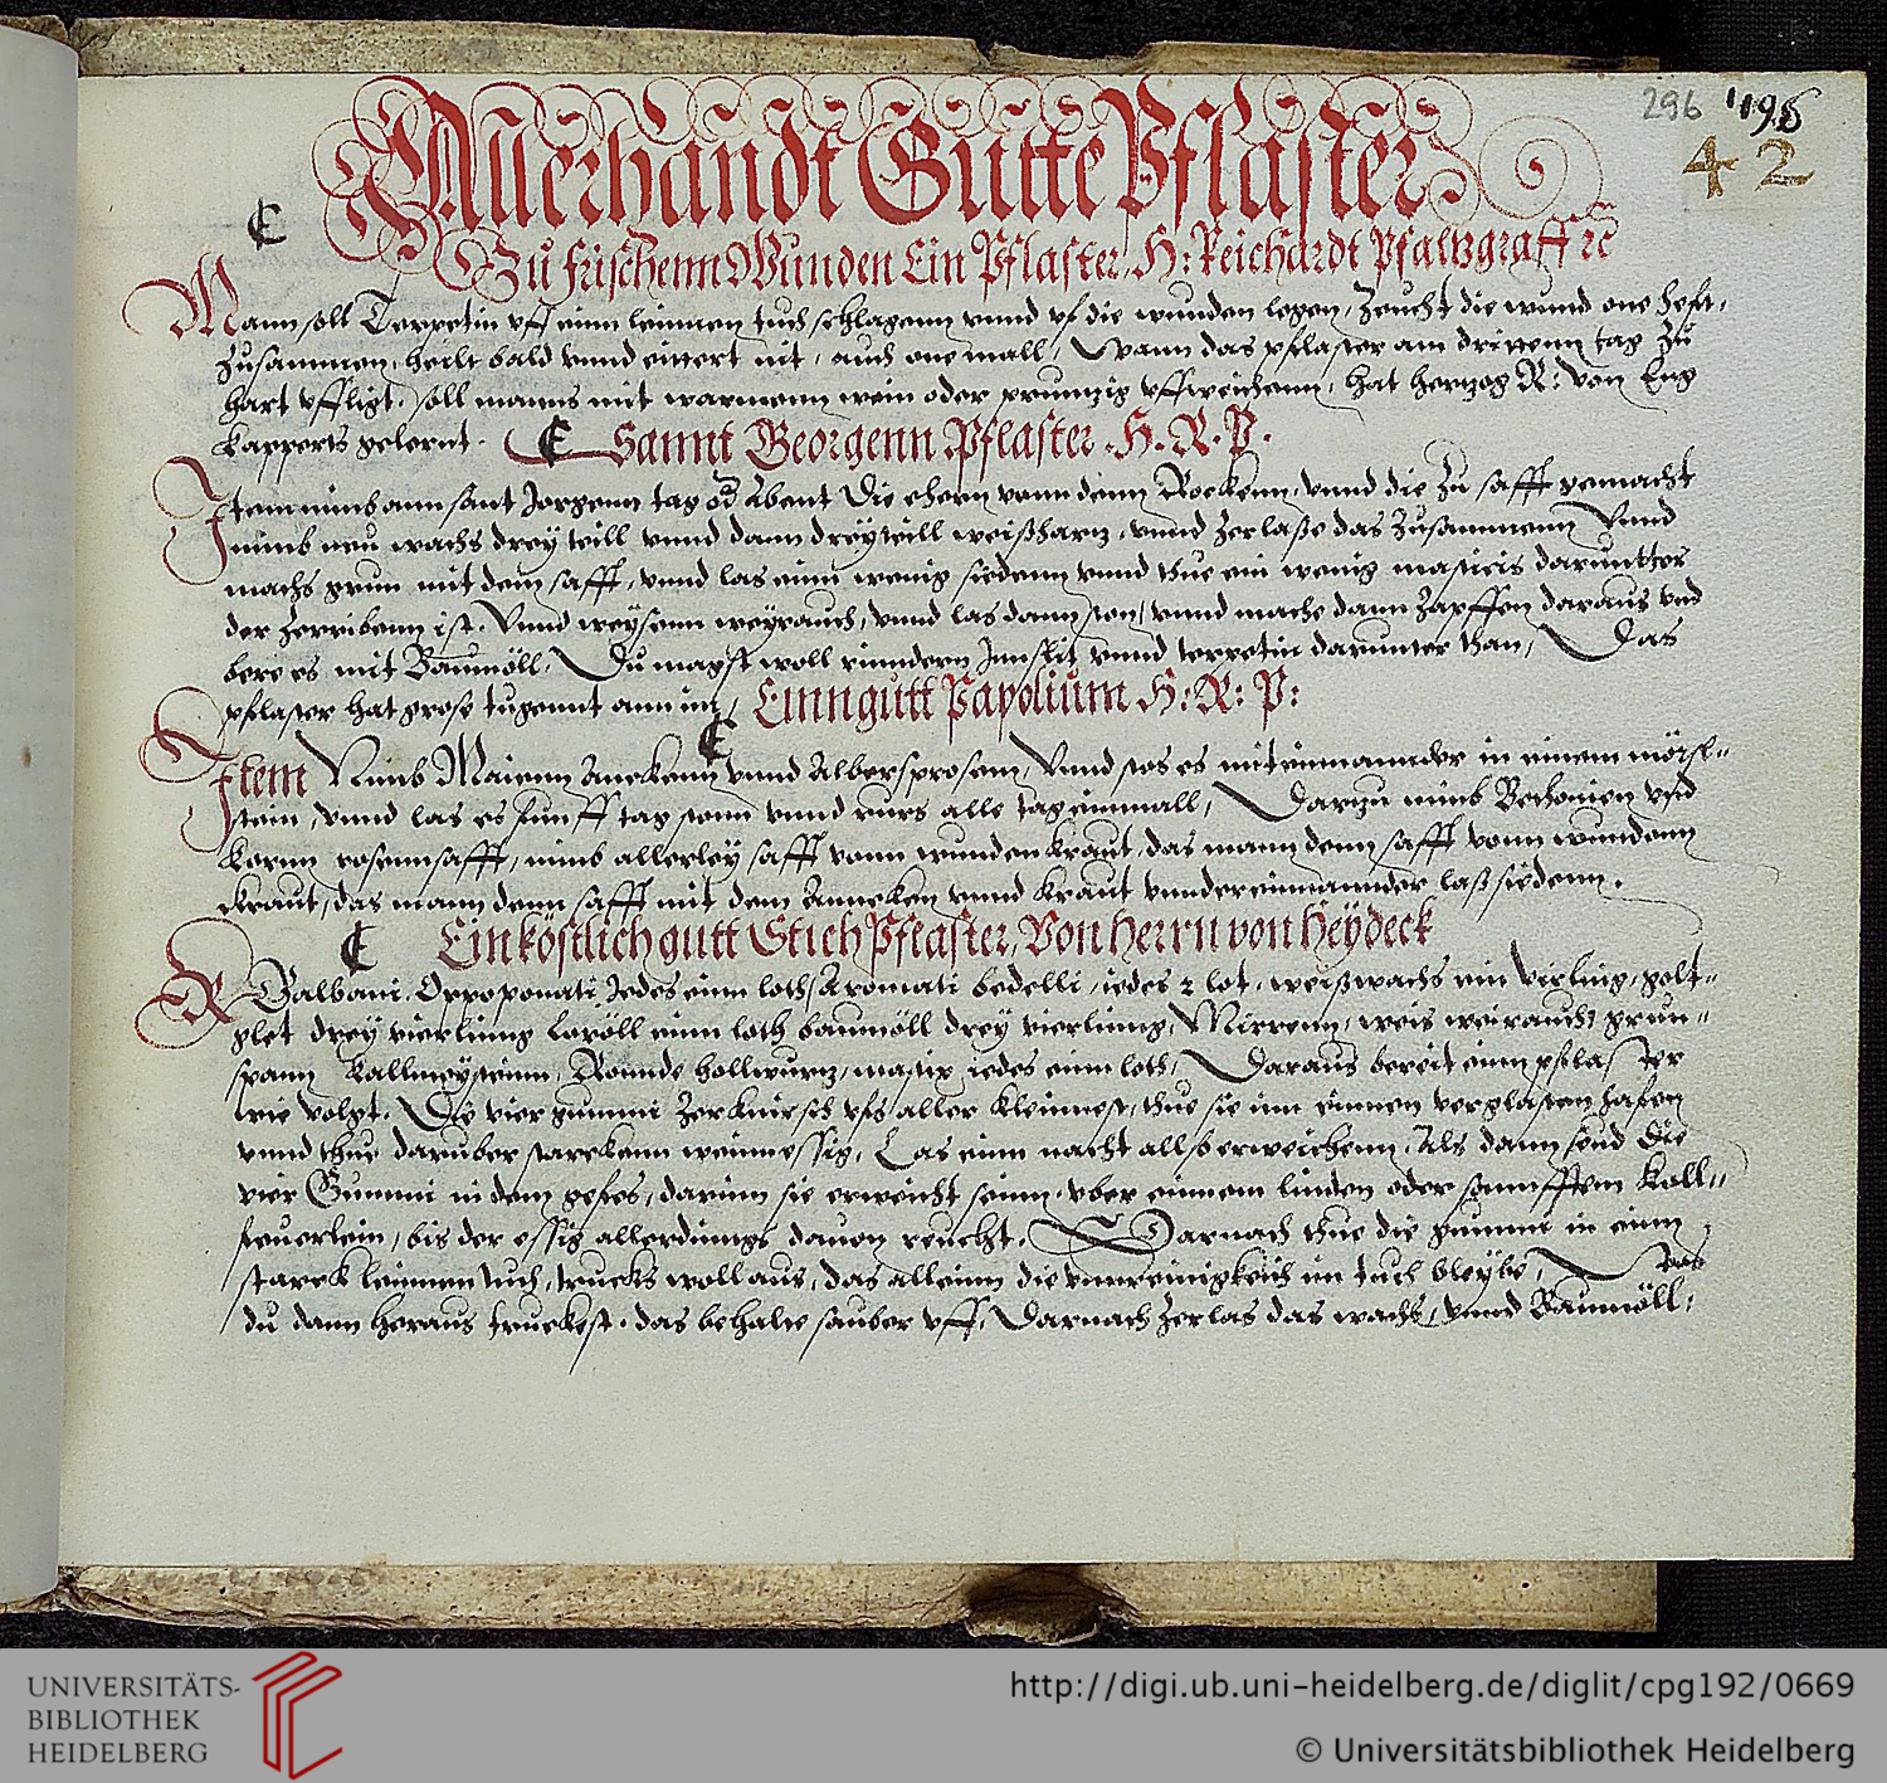 296 196
42
Allerhandt Gutte Pflaster
Zu frischenn Wunden Ein Pflaster, H: Reichardt Pfaltzgraff rc
Mann soll Terpetin vff einn leinnen tuch schlagenn vnnd vf die wunden legen, Zeucht die wund one heft,
Zusammen, heilt bald vnnd eittert nit, auch one mall, Wann das pflaster am drittenn tag Zu
hart vffligt, soll manns mit warmenn wein oder prunzig vffweichenn, hat hertzog R: von Eng
kapperts gelernt.
Sannt Georgenn Pflaster. H. R. P.
Item nimb ann sant Jorgenn tag od Abent Die ehern vonn denn Rockenn, vnnd die Zu safft gemacht
nimb neu wachs drey teill vnnd dann drey teill weißhartz, vnnd Zerlaße das Zusammenn Vnnd
machs grun mit dem safft, vnnd las einn wenig siedenn vnnd thue ein wenig masticis daruntter
der Zerribenn ist. Vnnd weysenn weyrauch, vnnd las dann ston, vnnd mache dann Zapffen daraus vnd
bere es mit Baumöll, Du magst woll rinndern Innslit vnnd terpetin darunter than, Das
pflaster hat grose tugennt ann im,
Einn gutt Papolium H: R: P:
Item Nimb Maienn Anckenn vnnd Albersprosenn, Vnnd stos es mit einnannder in einem mörsl-
stein, vnnd las es funff tag stonn vnnd rurs alle tag einmall, Darzu nimb Bethonien vnd
kornn rosennsafft, nimb allerley safft vonn wunden kraut, das mann denn safft vonn wundenn
kraut, das mann denn safft mit dem Anncken vnnd kraut vnndereinnannder laß siedenn.
Ein köstlich gutt Stich Pflaster, Von Herrn von Heydeck
R Galbani. Oppoponati Jedes einn loth, Aromati bedelli, iedes 2 lot. weißwachs ein virling, golt-
glet drey vierlinng Loröll einn loth baumöll drey vierlinng, Mirrenn, weis weirauch, grun-
spann kallmeysteinn, Ronnde hollwurtz, mastix iedes einn loth, Daraus bereit einn pflaster
wie volgt. Die vier gummi Zerknirsch vfs aller kleinnest, thue sie inn einnen verglasten hafen
vnnd thue daruber starckenn weinnessig, Las einn nacht allso erweichenn, Als dann seud die
vier Gummi in dem gefes, darinn sie erweicht seinn. vber einnem linden oder sannfftem koll-
feuerlein, bis der essig allerdinngs dauon reucht. Darnach thue die gummi in einn
starck leinnen tuch, trucks woll aus, das alleinn die vnnreinigkeit im tuch bleybe, Das
du dann heraus truckest. das behalte sauber vff, Darnach Zerlas das wachs, vnnd Baumöll,
UNIVERSITÄTS-
BIBLIOTHEK
HEIDELBERG
http://digi.ub.uni-heidelberg.de/diglit/cpg192/0669
© Universitätsbibliothek Heidelberg